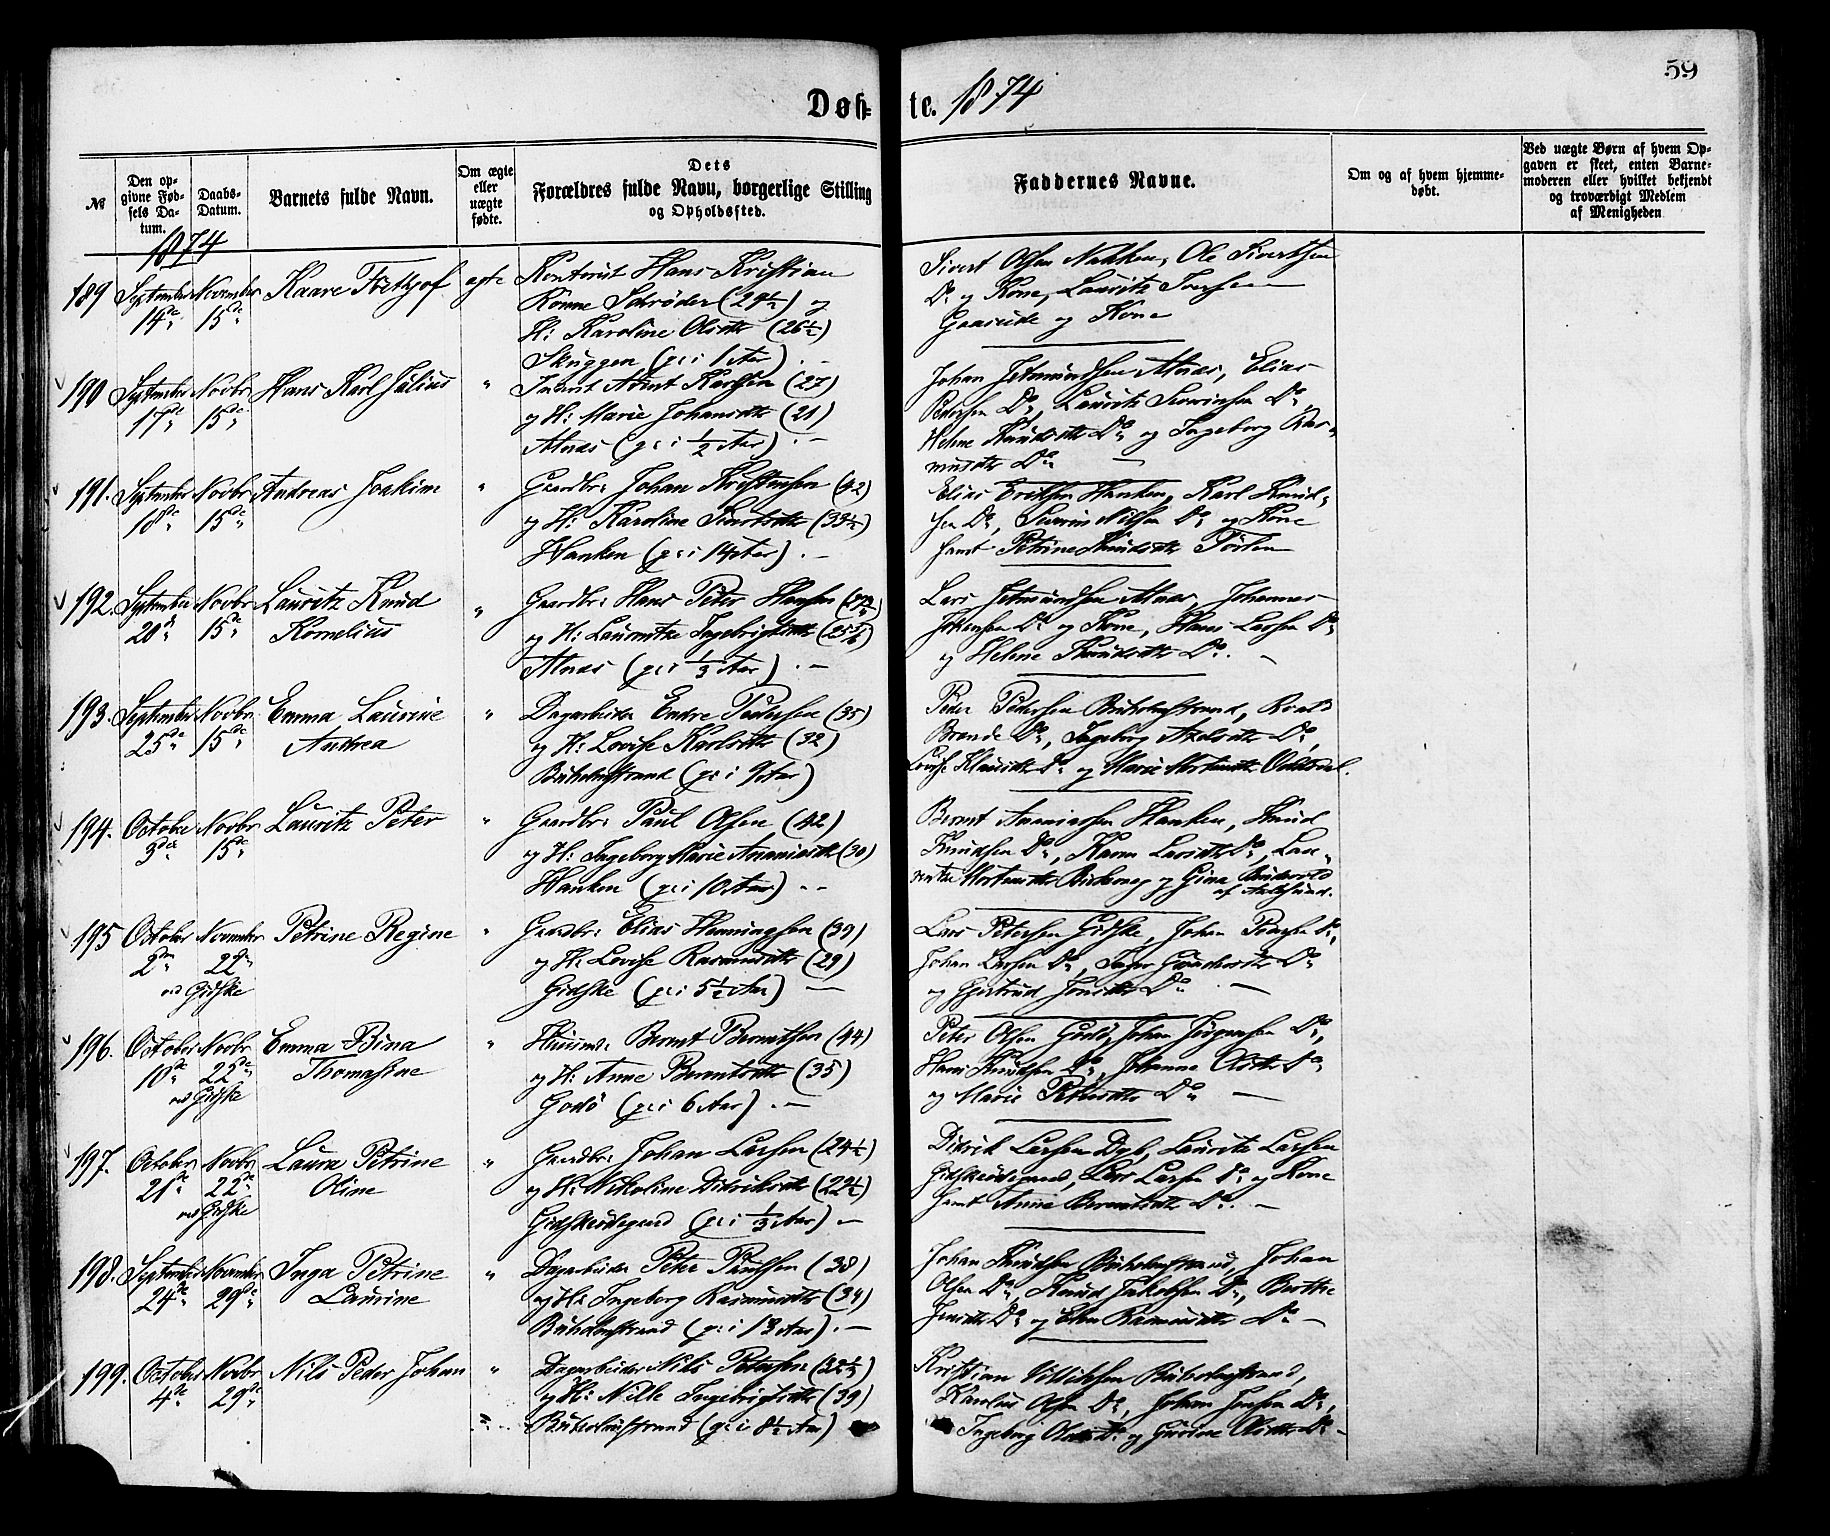 59
Døb= te. 1874
№
Den op-
givne Fød-
sels Da-
tum.
Daabs-
Datum.
Barnets fulde Navn.
Om ægte
eller
uægte
fødte.
Dets
Forældres fulde Navn, borgerlige Stilling
og Opholdssted.
Faddernes Navne.
Om og af hvem hjemme-
døbt.
Ved uægte Børn af hvem Op-
gaven er skeet, enten Barne-
moderen eller hvilket bekjendt
og troværdigt Medlem
af Menigheden
1874
189 September 14de November 15de
Kaare
ægte
Hans Kristian
Schrøder (29½) og
H: Karoline Olsdtr (26½)
Skuggen (g: i 1 Aar) . —
Sivert Olsen Nakken, Ole Sivertsen
Do og Kone, Lauritz Iversen
Gaaseide og Kone
190 September 17de Novbr 15de
Hans Karl Julius
"
(27)
og H: Marie Johansdtr (21)
Alnæs (g: i ½ Aar) . —
Johan Jetmundsen Alnæs, Elias
Pedersen Do, Lauritz Severinsen Do,
Helene Knudsdtr Do og Ingeborg Ras-
musdtr Do —
191. September 18de Novbr 15de
Andreas Joakim
"
Gaardbr: Johan Kristensen (42)
og H: Karoline
Hanken (g: i 14 Aar) . —
Elias Eriksen Hanken, Karl Knud-
sen Do, Severin Nilsen Do og Kone
samt Petrine Knudsdtr
192. September 20de Novbr 15de
Lauritz Knud
Kornelius
"
Gaardbr: Hans Peter Hansen
og H: Laurentze Ingebrigtsdtr
Alnæs (g: i ⅓ Aar) . —
Lars Jetmundsen Alnæs, Johannes
Johansen Do og Kone, Hans Larsen Do
og Helene Knudsdtr Do. —
193. September 25de Novbr 15de
Emma Laurine
Andrea
"
Dagarbeider Endre Pedersen (35)
og H: Lovise Karlsdtr (32)
Buholmstrand (g: i 9 Aar)
Peder Pedersen Buholmstrand,
Brande Do, Ingeborg Do,
Do og Marie Mortensdtr
194. October 3die Novbr 15de
Lauritz Peter
"
Gaardbr: Paul Olsen (42)
og H: Ingeborg Marie Ananiasdtr (30)
Hanken (g: i 10 Aar) . —
Bernt Ananiassen Hanken, Knud
Knudsen Do, Karen Larsdtr Do, Lau-
rentze Mortensdtr og Gina
af Aalesund.
195 October 2den November 22de
ved Gidske
Petrine Regine
"
Gaardbr: Elias Henningsen (39)
og H: Lovise Rasmusdtr (29)
Gidske (g: i 5½ Aar) —
Lars Petersen Gidske, Johan Do,
Johan Larsen Do, Inger Do
og Gjertrud Jonsdtr Do —
196. October 10de Novbr 22de
ved Gidske
Emma Bina
Thomasine
"
Huusmd: Bernt Berntsen (44)
og H: Anne Berntsdtr (35)
Godø (g: i 6 Aar) . —
Peter Olsen Godø, Johan Jørgensen Do,
Hans Knudsen Do, Johanne Olsdtr Do
og Marie Petersdtr Do —
197. October 21de Novbr 22de
ved Gidske
Laura Petrine
Oline
"
Gaardbr: Johan Larsen (24½)
og H: Nikoline Didriksdtr (22½)
Gidskeødegaard (g: i ⅓ Aar) —
Didrik Larsen Dyb, Lauritz Larsen
Gidskeødegaard, Lars Larsen Do og Kone
samt Anne Berntsdtr Do. —
198. September 24de November 29de
Inga Petrine
Laurine
"
Dagarbeider Peter (38)
og H: Ingeborg Rasmusdtr (34)
Buholmstrand (g: i 13 Aar) . —
Johan Knudsen Buholmstrand, Johan
Olsen Do, Knud Jakobsen Do, Berthe
Jensdtr Do og Elen Rasmusdtr Do —
199. October 4de Novbr 29de
Nils Peder Johan
"
Dagarbeider Nils Petersen (32½)
og H: Nille Ingebrigtsdtr (39)
Buholmstrand (g: i 8½ Aar)
Kristian Buholmstrand,
Olsen Do, Johan Jensen Do,
Ingeborg Do og Gurine Olsdtr Do —